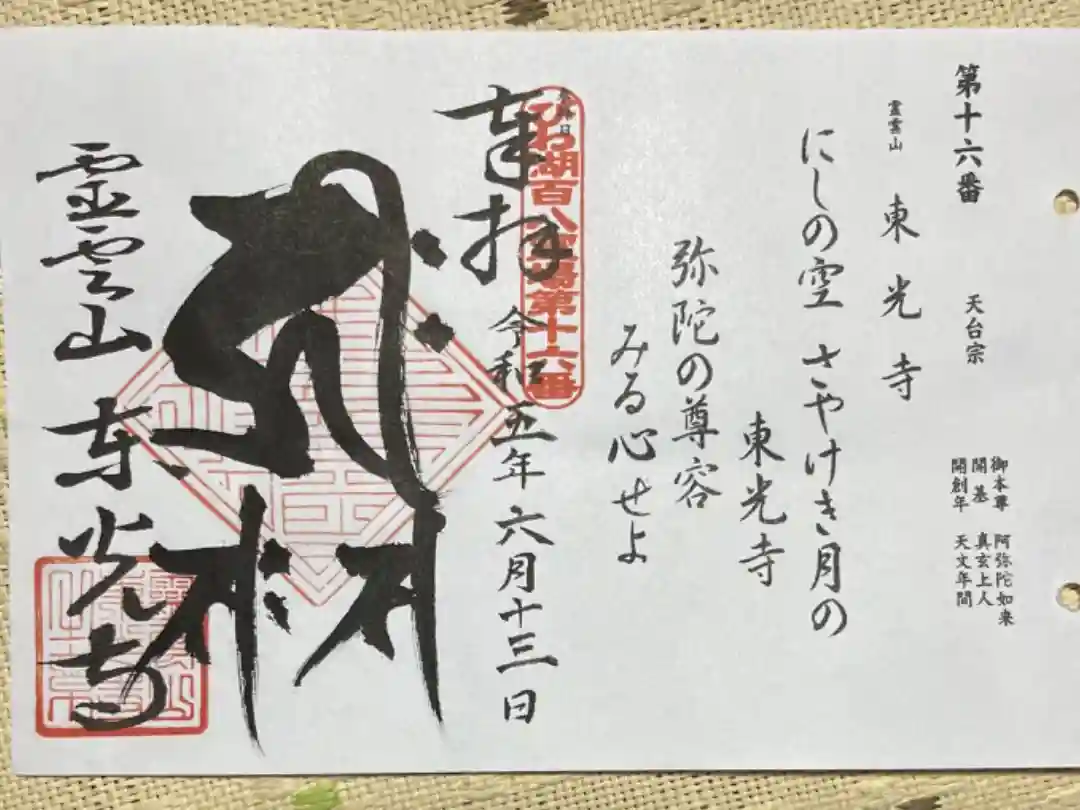 第十六番 天台宗
御本尊 阿弥陀如来
開基 真玄上人
開創年 天文年間
霊雲山 東光寺
にしの空 さやけき月の
東光寺
弥陀の尊容
みる心せよ
びわ湖百八霊場第十六番
奉拝
令和五年六月十三日
霊雲山東光寺